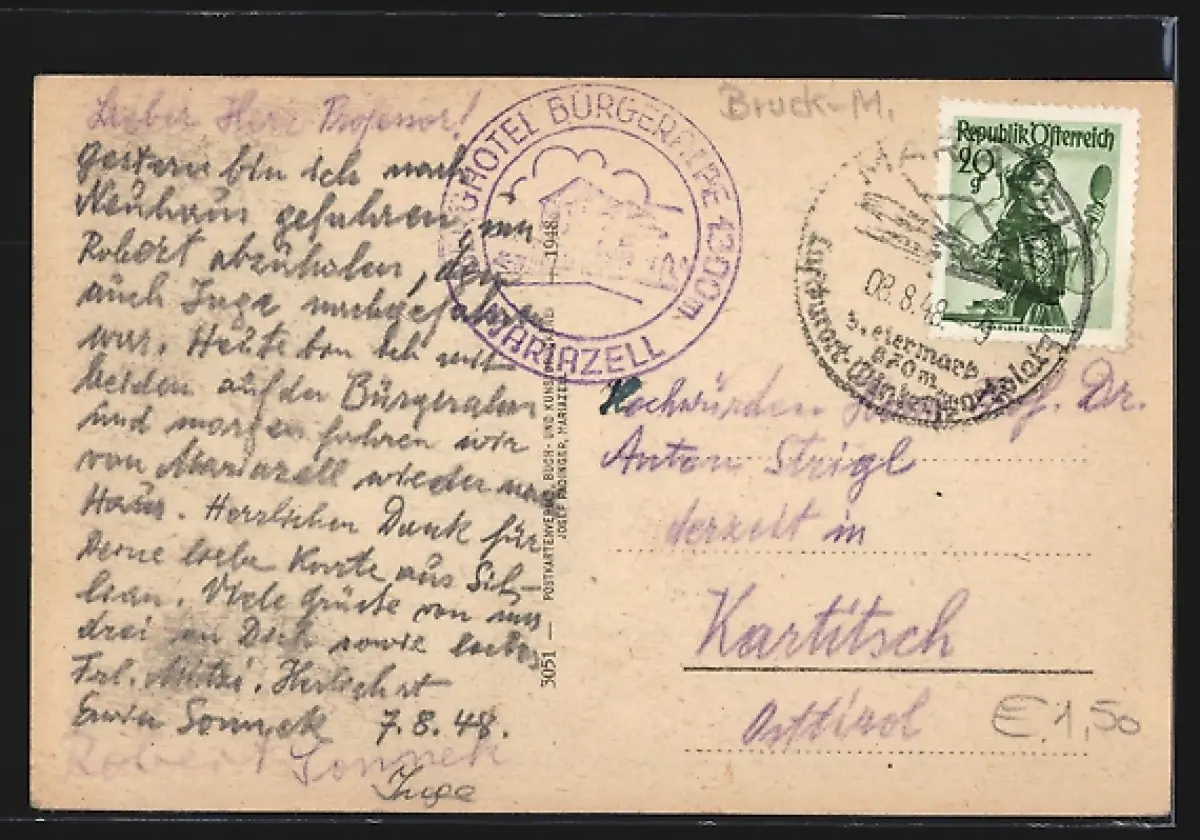 Lieber Herr Professor!
gestern bin ich nach
Neuhaus gefahren, um
Robert abzuholen, dem
auch Inge nachgefahren
war. Heute bin ich mit
beiden auf der Bürgeralm
und morgen fahren wir
von Mariazell wieder nach
Haus. Herzlichen Dank für
Deine liebe Karte aus Sil-
lian. Viele Grüße von uns
drei an Dich sowie liebes
Frl. Mitzi. Herzlichst
Erwin Sonnek 7.8.48.
Robert Sonnek
Inge
BERGHOTEL BÜRGERALPE 1300 E
MARIAZELL
3051 — POSTKARTENVERLAG, BUCH- UND KUNSTHANDLUNG — 1948
JOSEF RADINGER, MARIAZELL
Bruck-M.
Republik Österreich
20
g
MARIAZELL
08.8.48.-9
Steiermark
870 m
Luftkurort-Wintersportplatz
Hochwürden Herrn Prof. Dr.
Anton Strigl
derzeit in
Kartitsch
Osttirol
E 1,50